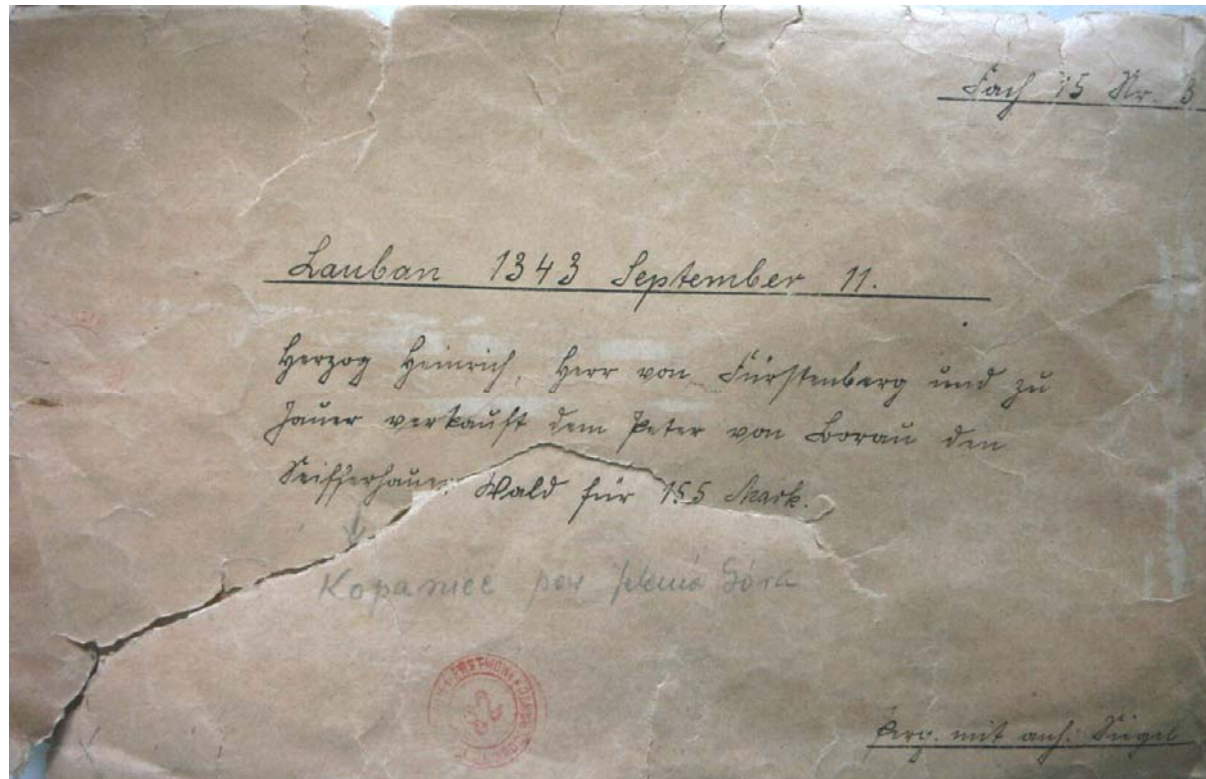 Fach 15 Nr. 3
Lauban 1343 September 11.
Herzog Heinrich, Herr von Fürstenberg und zu
Jauer verkauft dem Peter von Borau den
Seifferhauer Wald für 155 Mark.
Kopaniec pow Jelenia Góra
Perg. mit anh. Siegel